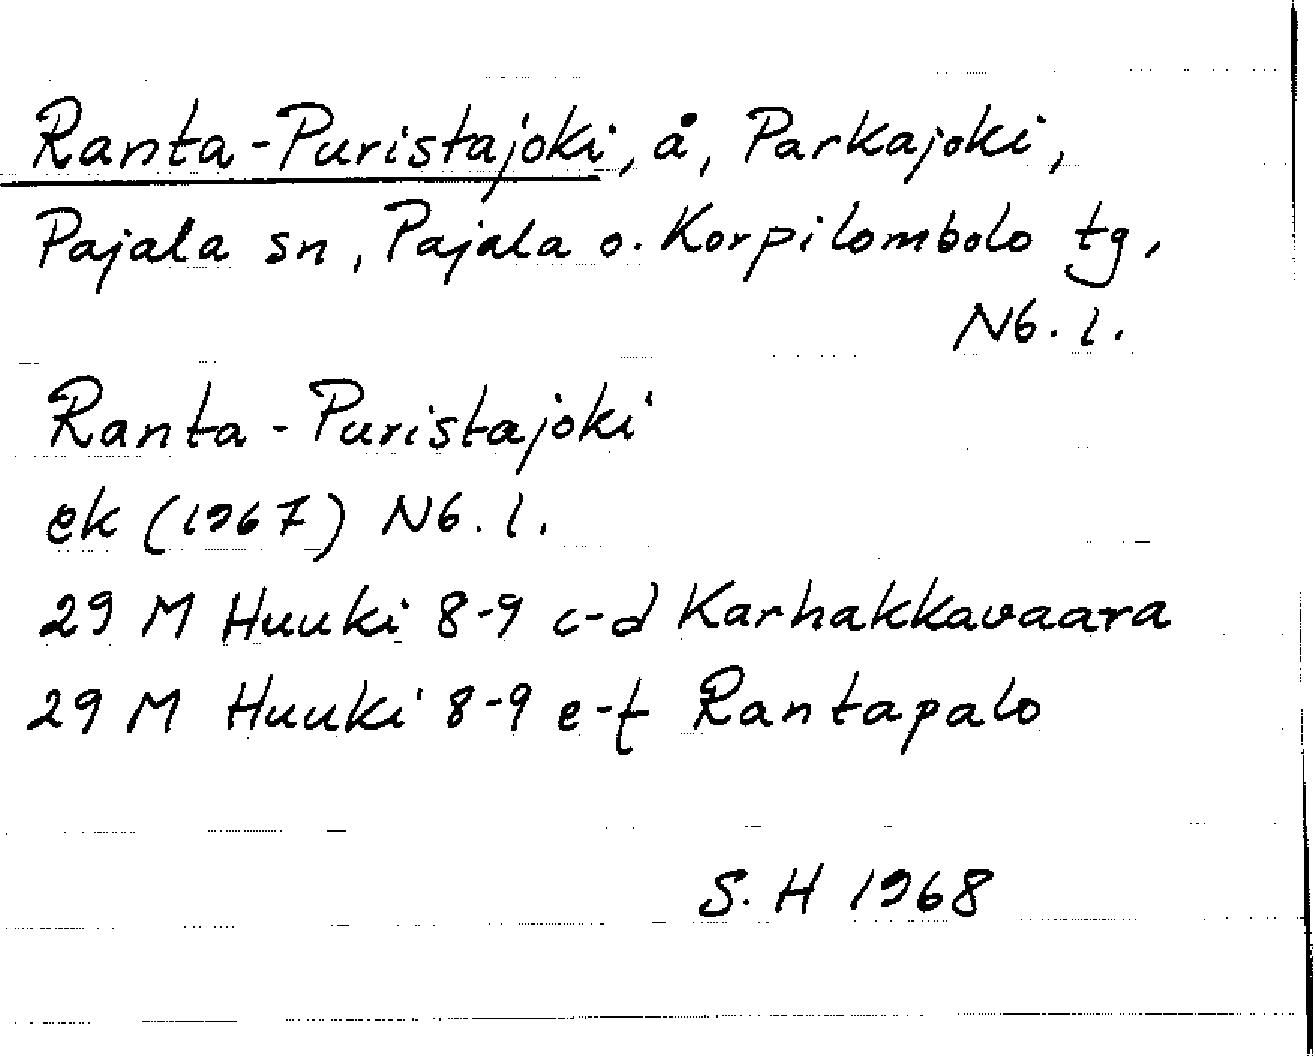 Ranta-Puristajoki, å, Parkajoki,
Pajala sn, Pajala o. Korpilombolo tg,
Nb. l.
Ranta-Puristajoki
ek (1967) Nb. l.
29 M Huuki 8-9 c-d Karhakkavaara
29 M Huuki 8-9 e-f Rantapalo
S. H 1968